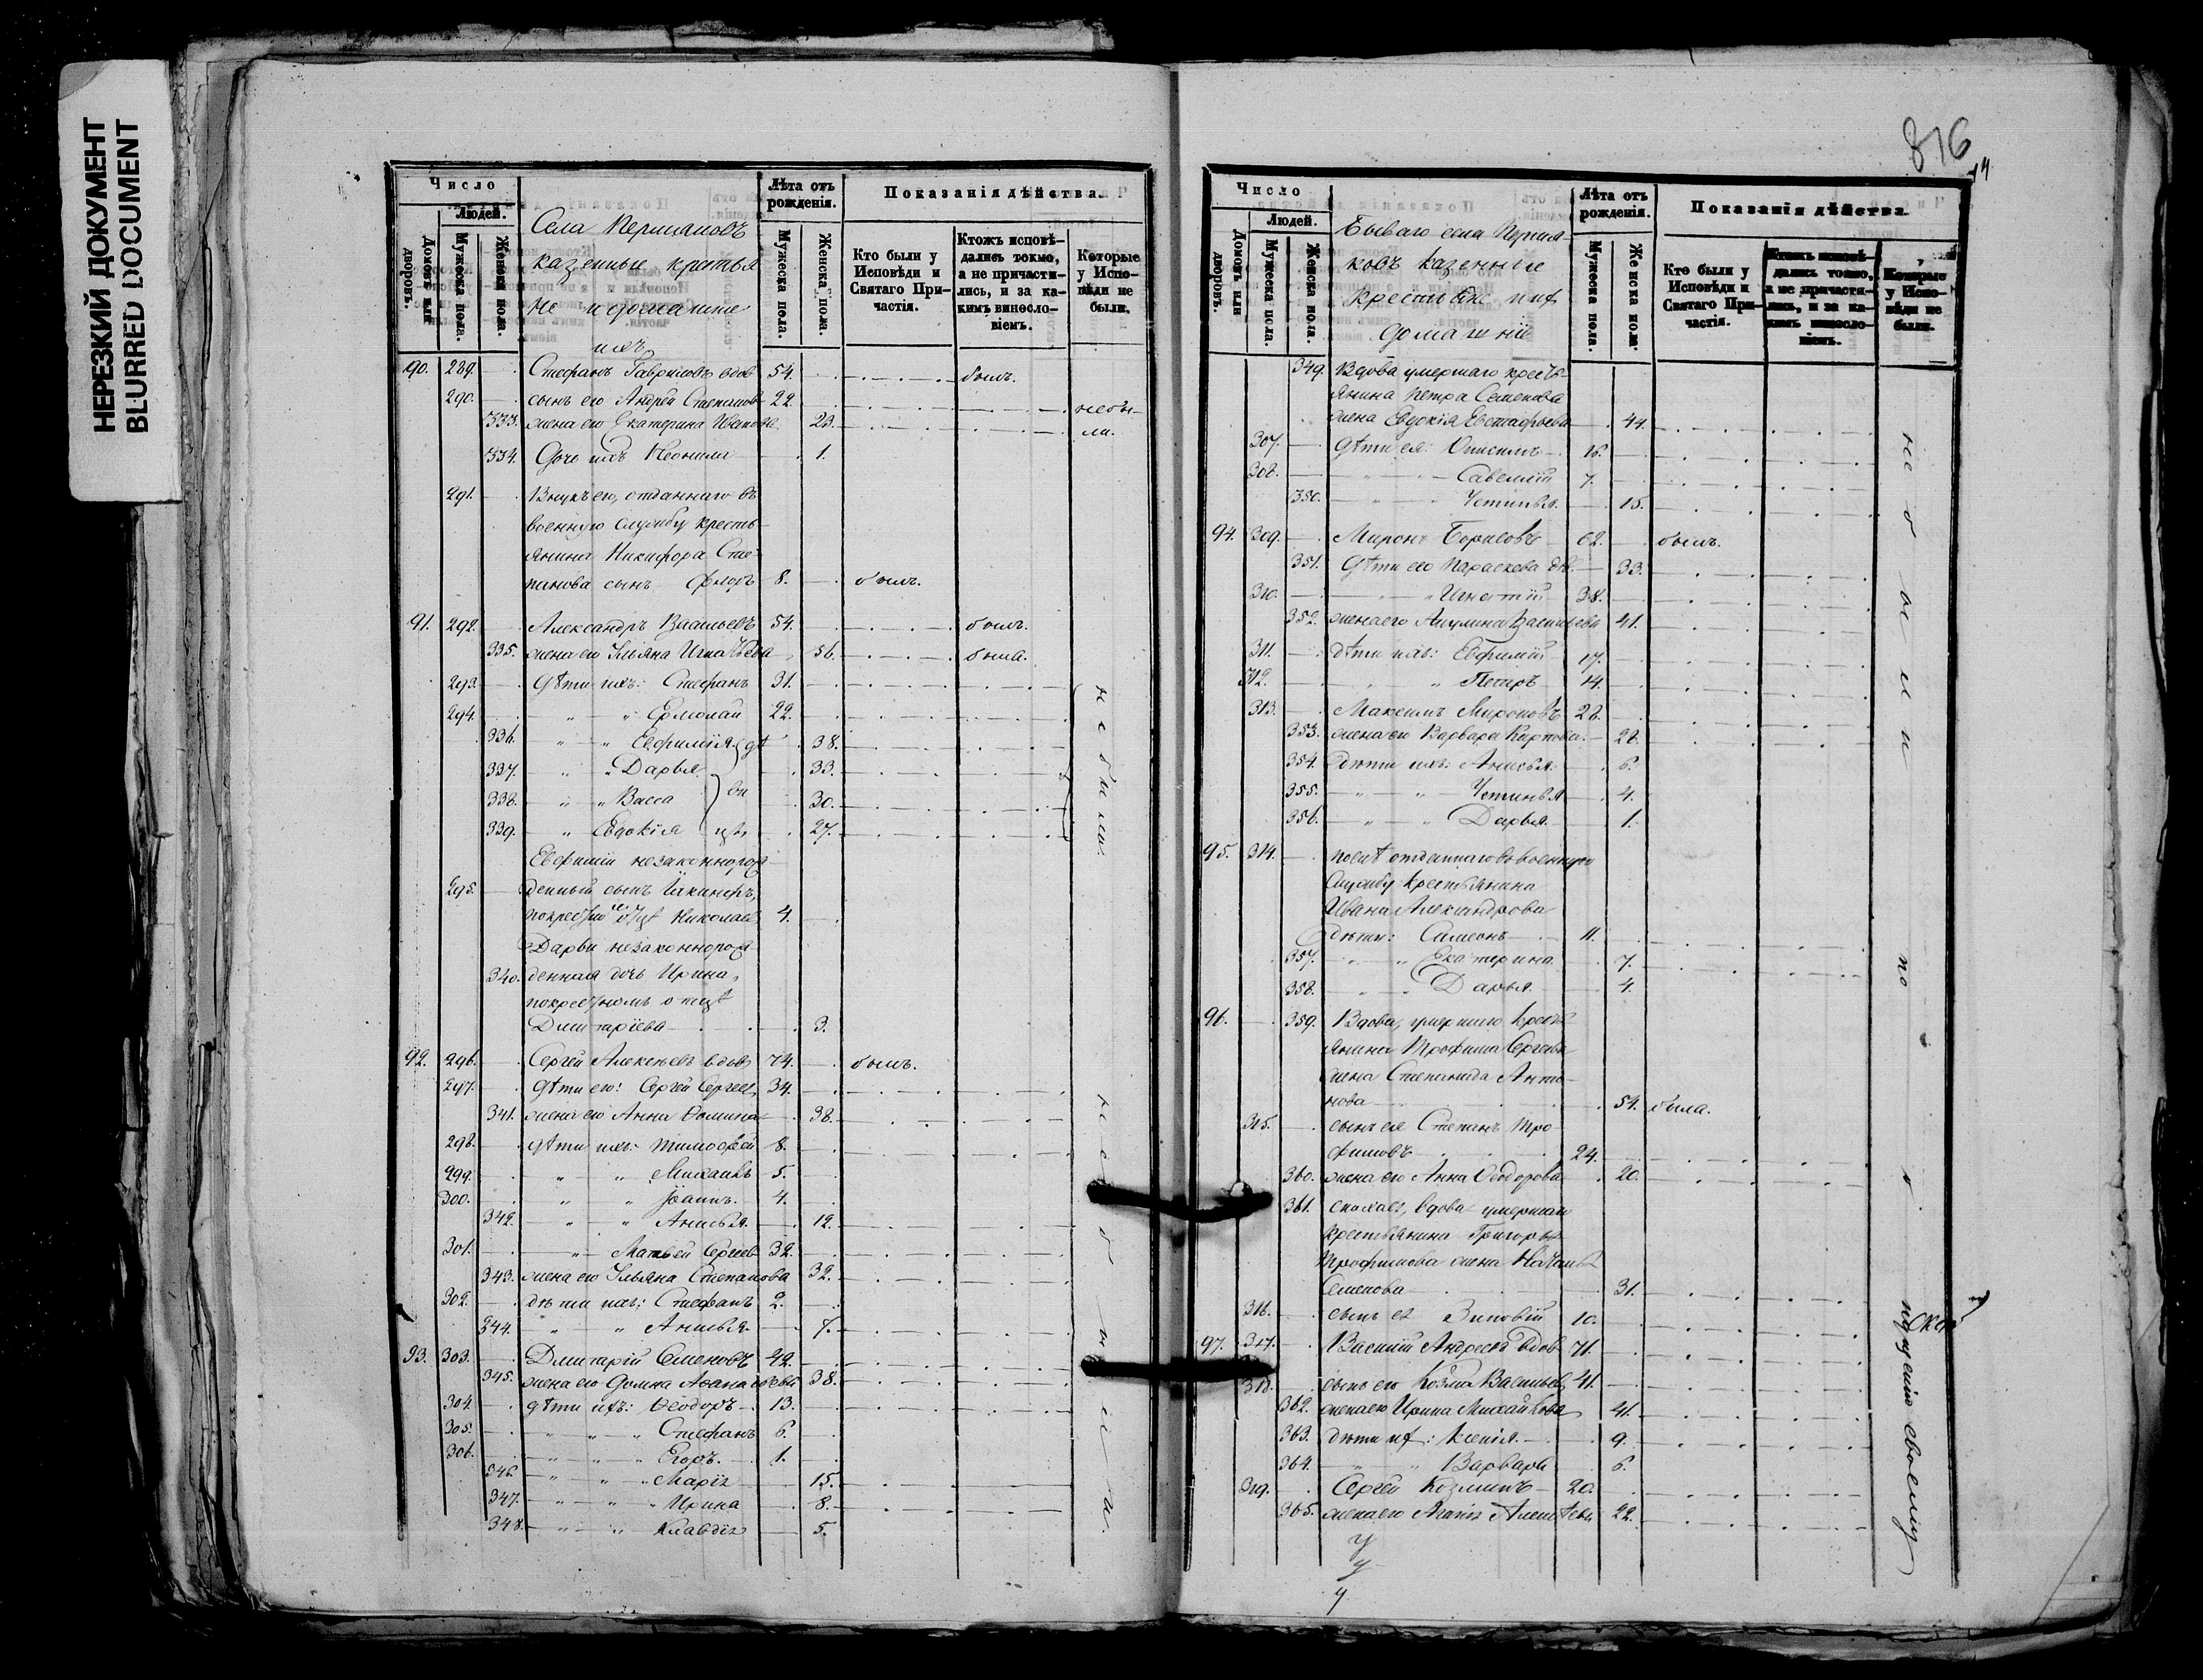 НЕРЕЗКИЙ ДОКУМЕНТ
BLURRED DOCUMENT
Число
Людей.
Домовъ или дворовъ.
Мужеска пола.
Женска пола.
Села
казенные крестья
не и домашние
ихъ
Лѣта отъ рожденія.
Мужеска пола.
Женска пола.
Показанія дѣйства.
Кто были у Исповѣди и Святаго Причастія.
Ктожъ исповѣдались токмо, а не причастились, и за какимъ винословіемъ.
Которые у Исповѣди не были.
90. 289. Стефанъ Гавриловъ вдов 54. былъ.
290. сынъ его Андрей Степанов 22. небы-
333. жена его Екатерина Иванова 23. ли.
334. Дочь ихъ Неонила 1.
291. Внукъ его, отданнаго въ
военную службу кресть-
янина Никифора Сте-
панова сынъ Флоръ 8. былъ.
91. 292. Александръ Васильевъ 54. былъ.
335. жена его Ульяна Игнатьева 56. была.
293. Дѣти ихъ: Стефанъ 31.
294. " " Ермолай 22.
336. " " Евфимія дѣ 38.
337. " " Дарья 33.
338. " " Васса ви 30.
339. " Евдокія цы 27.
не были.
Евфиміи незаконнорож
295. денный сынъ Іакинфъ,
Николаев 4.
Дарьи незаконнорож
340. денная дочь Ирина,
покрестномъ отцѣ
Дмитріева 3.
92. 296. Сергей Алексѣевъ вдов 74. былъ.
297. Дѣти его: Сергей Сергеев 34.
341. жена его Анна Фомина 38.
298. дѣти ихъ: Тимофей 8.
299. " " Михаилъ 5.
300. " " Іоаннъ. 4.
342. " " Анисья. 12.
301. " Матвей Сергеев 32.
343. жена его Ульяна Степанова 32.
302. дѣти ихъ: Стефанъ 2.
344. " " Анисья. 7.
93. 303. Дмитрій Семеновъ 42.
345. жена его Домна Афанасьева 38.
304. дѣти ихъ: Феодоръ 13.
305. " " " Стефанъ 6.
306. " " " Егоръ. 1.
346. " " " Марія 15.
347. " " " Ирина 8.
348. " " Клавдія 5.
не были.
816
Число
Людей.
Домовъ или дворовъ.
Мужеска пола.
Женска пола.
Бываго села
ковъ казенные
крестьяне и их
домашніе
Лѣта отъ рожденія.
Мужеска пола.
Женска пола.
Показанія дѣйства.
Кто были у Исповѣди и Святаго Причастія.
Ктожъ исповѣдались токмо, а не причастились, и за какимъ винословіемъ.
Которые у Исповѣди не были.
349. Вдова умершаго кресть-
янина Петра Семенова
жена Евдокія Евстафьева 44.
307. Дѣти ея: Онисимъ 16.
308. " " Савелій 7.
350. " " Устинья 15.
94. 309. Миронъ Борисовъ 62. былъ.
351. Дѣти его Параскева дѣв. 33.
310. " " Игнатій 38.
352. жена его Акулина Васильева 41.
311. дѣти ихъ: Евфимій 17.
312. " " Петръ 14.
313. Максимъ Мироновъ 28.
353. жена его Варвара Карпова. 28.
354. дѣти ихъ: Анисья. 6.
355. " " Устинья 4.
356. " " Дарья. 1.
95. 314. послѣ отданнаго въ военную
службу крестьянина
Ивана Александрова
дѣти: Симеонъ 11.
357. " " Екатерина 7.
358. " " Дарья 4.
96. 359. Вдова, умершаго кресть
янина Трофима Сергеева
жена Степанида Анто-
нова 54. была.
315. сынъ ея Степанъ Тро
фимовъ 24.
360. жена его Анна Феодорова 20.
361. вдова умершаго
крестьянина Григорья
Трофимова жена Наталья
Семенова 31.
316. сынъ ея Зиновій 10.
97. 317. Василій Андреевъ вдов 71.
318. сынъ его Козма Васильев 41.
362. жена его Ирина Михайлова 41.
363. дѣти их: Ксенія. 9.
364. " " Варвара 6.
319. Сергей Козминъ 20.
365. жена его Марія Алексѣева 22.
не были по
нерадению своему